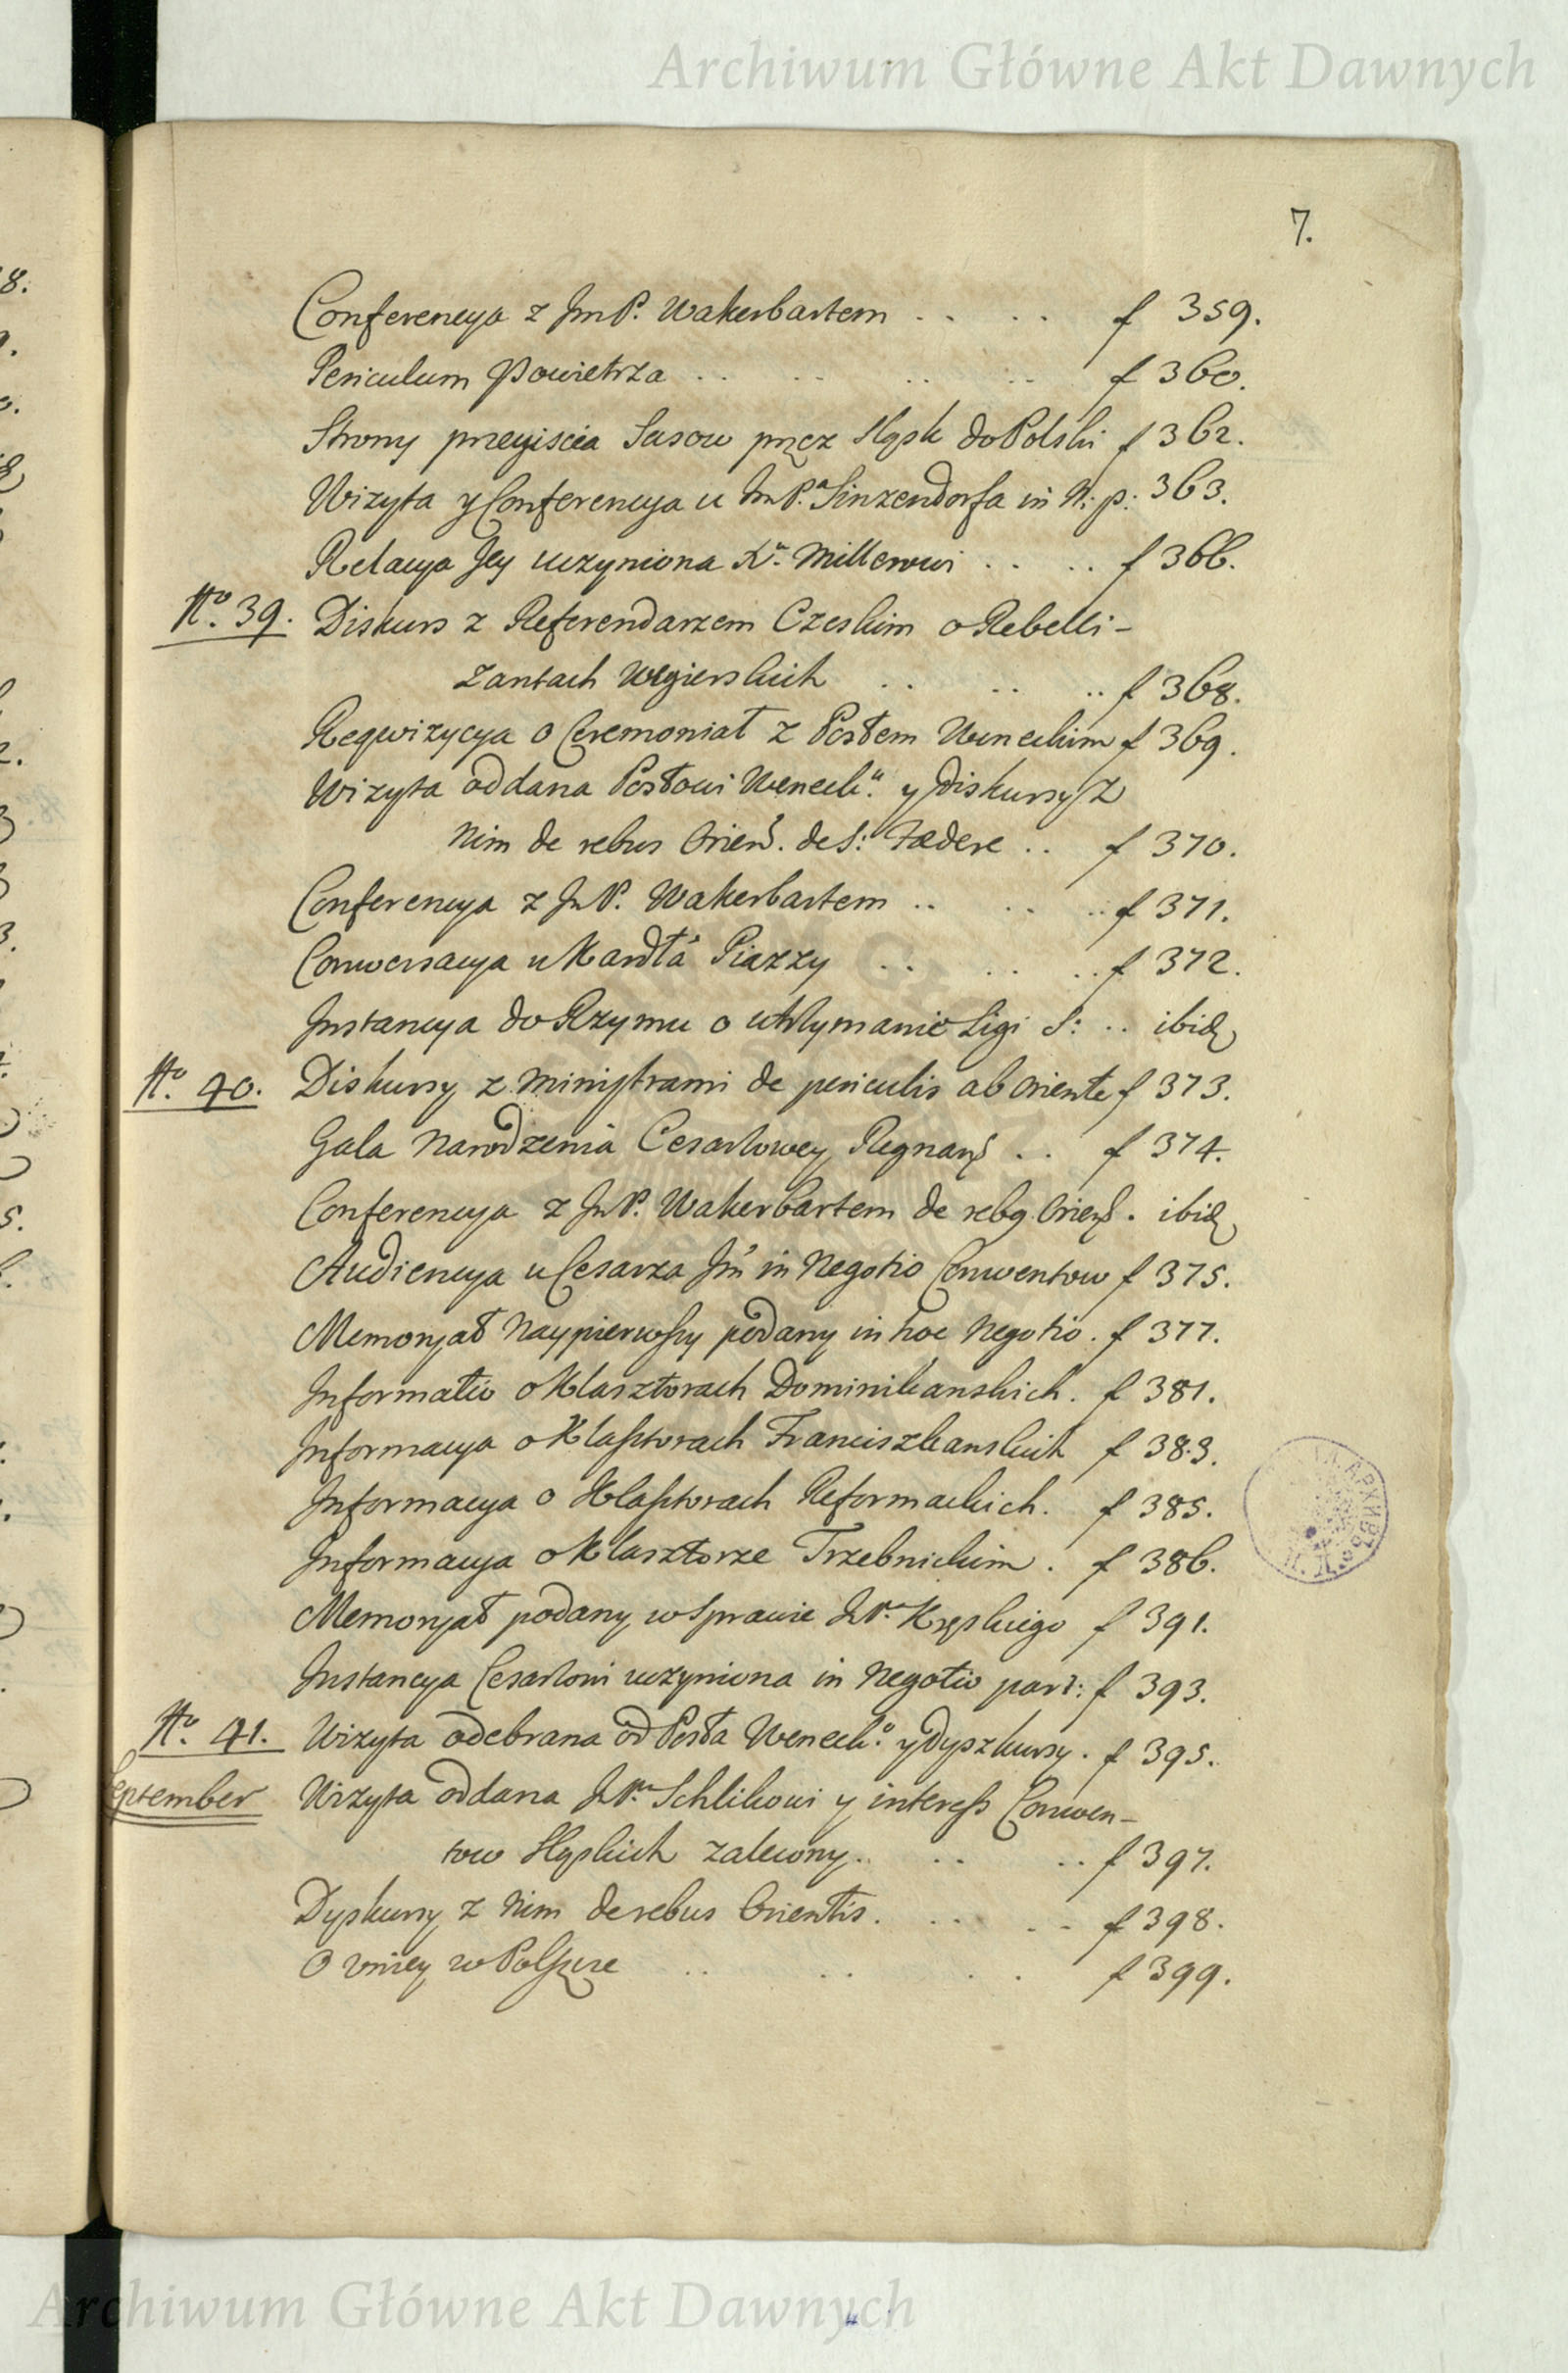 Archiwum Główne Akt Dawnych
7.
Conferencya z JmP. Wakerbartem . . . . f 359.
Periculum Powietrza . . . . f 360.
Strony przeyiscia Sasow przez Sląsk do Polski f 362.
Wizyta y Conferencya u JmP.ª Sinzendorfa in N: p: 363.
Relacya Jey uczyniona X.ª Millerowi . . . . f 366.
No. 39. Diskurs z Referendarzem Czeskim o Rebelli-
zantach Węgierskich . . . . f 368.
Reqwizycya o Ceremoniał z Posłem Weneckim f 369.
Wizyta oddana Posłowi Weneck.u y Diskursy z
Nim de rebus Orien. de S: Fædere . . f 370.
Conferencya z JmP. Wakerbartem . . . . f 371.
Conwersacya u Kardła Piazzy . . . . f 372.
Instancya do Rzymu o utrzymanie Ligi S: . . ibid
No. 40. Diskursy z Ministrami de periculis ab Oriente f 373.
Gala Narodzenia Cesarzowey Regnant . . f 374.
Conferencya z JmP. Wakerbartem de reb9 Orient. ibid
Audiencya u Cesarza Jm in Negotio Conwentow f 375.
Memoryał Naypierwszy podany in hoc Negotio. f 377.
Informatio o Klasztorach Dominikanskich. f 381.
Informacya o Klasztorach Franciszkanskich f 383.
Informacya o Klasztorach Reformackich. f 385.
Informacya o Klasztorze Trzebnickim. f 386.
Memoryał podany w Sprawie JmP.ª Kręskiego f 391.
Instancya Cesarzowi uczyniona in Negotio part: f 393.
No. 41. Wizyta odebrana od Posła Weneck.o y Dyszkursy. f 395.
September Wizyta oddana JmP.ª Schlikowi y interess Conwen-
tow Sląskich zalecony. . . . . f 397.
Dyskursy z Nim de rebus Orientis. . . . . f 398.
O Vniey w Polszcze . . . . f 399.
Archiwum Główne Akt Dawnych